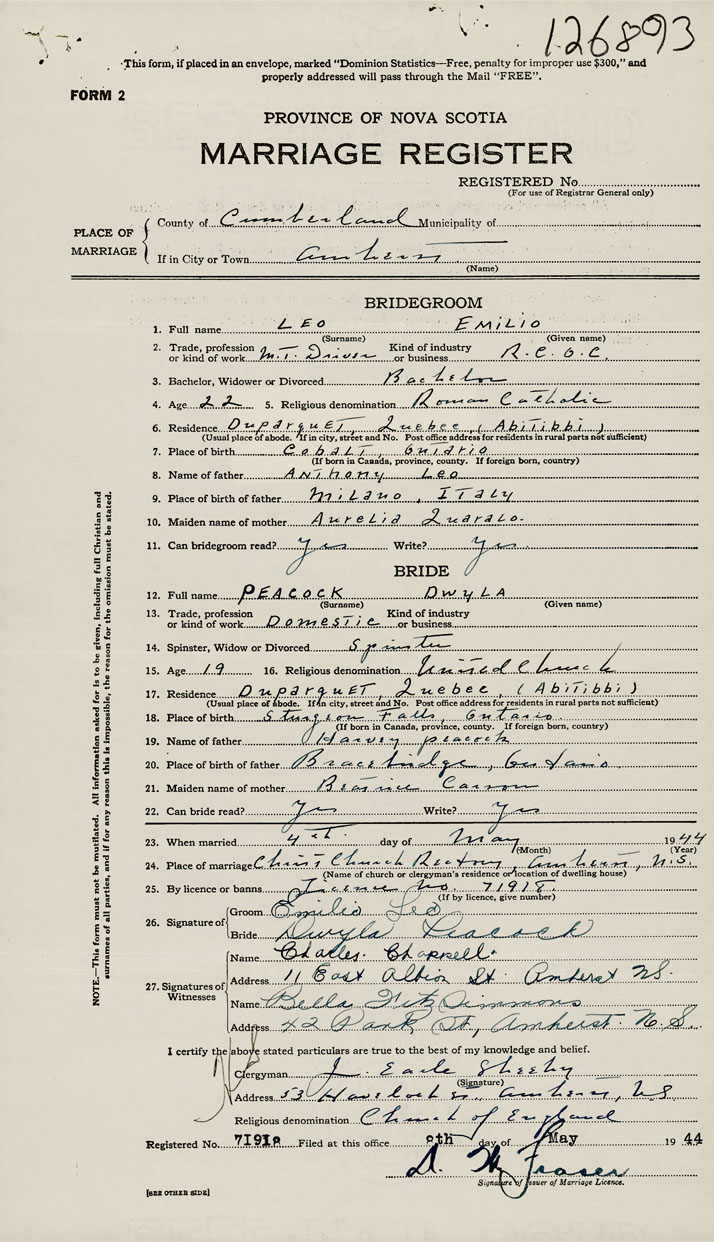 126893
This form, if placed in an envelope, marked "Dominion Statistics—Free, penalty for improper use $300," and
properly addressed will pass through the Mail "FREE".
FORM 2
PROVINCE OF NOVA SCOTIA
MARRIAGE REGISTER
REGISTERED No.
(For use of Registrar General only)
PLACE OF MARRIAGE
County of Cumberland Municipality of
If in City or Town Amherst
(Name)
BRIDEGROOM
1. Full name LEO EMILIO
(Surname) (Given name)
2. Trade, profession or kind of work M.T. Driver Kind of industry or business R.C.O.C.
3. Bachelor, Widower or Divorced Bachelor
4. Age 22 5. Religious denomination Roman Catholic
6. Residence DuparqueT, Quebec, (AbiTibbi)
(Usual place of abode. If in city, street and No. Post office address for residents in rural parts not sufficient)
7. Place of birth CobalT, OnTario
(If born in Canada, province, county. If foreign born, country)
8. Name of father ANThony Leo
9. Place of birth of father Milano, ITaly
10. Maiden name of mother Aurelia Quaralo.
11. Can bridegroom read? Yes Write? Yes
BRIDE
12. Full name PEACOCK DWYLA
(Surname) (Given name)
13. Trade, profession or kind of work Domestic Kind of industry or business
14. Spinster, Widow or Divorced Spinster
15. Age 19 16. Religious denomination United Church
17. Residence DuparqueT, Quebec, (AbiTibbi)
(Usual place of abode. If in city, street and No. Post office address for residents in rural parts not sufficient)
18. Place of birth Sturgeon Falls, Ontario.
(If born in Canada, province, county. If foreign born, country)
19. Name of father Harvey Peacock
20. Place of birth of father Bracebridge, Ontario
21. Maiden name of mother Beatrice Carson
22. Can bride read? Yes Write? Yes
23. When married 4th day of May 1944
(Month) (Year)
24. Place of marriage Christ Church Rectory, Amherst, N.S.
(Name of church or clergyman's residence or location of dwelling house)
25. By licence or banns Licence no. 71918
(If by licence, give number)
26. Signature of
Groom Emilio Leo
Bride Dwyla Peacock
27. Signatures of Witnesses
Name Charles Chappell
Address 11 East Albion St. Amherst NS.
Name Bella FitzSimmons
Address 42 Park St, Amherst. N.S.
I certify the above stated particulars are true to the best of my knowledge and belief.
Clergyman J. Earle Sheehy
(Signature)
Address 53 Havelock St., Amherst, N.S.
Religious denomination Church of England
Registered No. 71918 Filed at this office 8th day of May 1944
Signature of Issuer of Marriage Licence.
D. W. Fraser
[SEE OTHER SIDE]
NOTE.—This form must not be mutilated. All information asked for is to be given, including full Christian and
surnames of all parties, and if for any reason this is impossible, the reason for the omission must be stated.